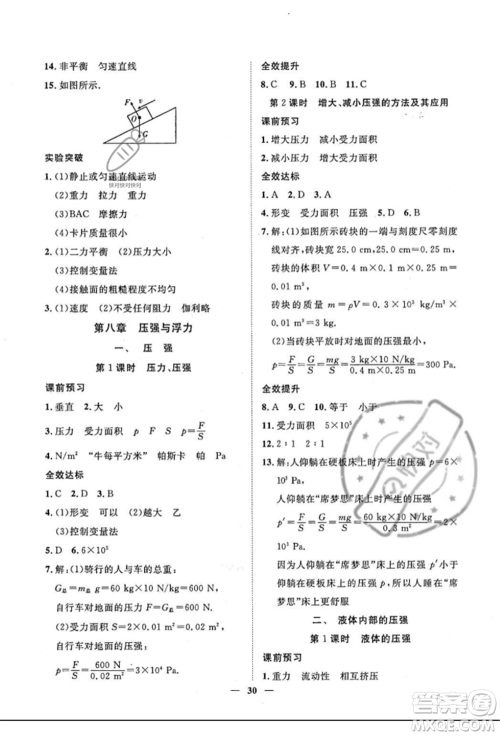 14. 非平衡 匀速直线
15. 如图所示.
F
O
G
实验突破
1. (1)静止或匀速直线运动
(2)重力 拉力 重力
(3)BAC 摩擦力
(4)卡片质量较大
2. (1)二力平衡 压力大小
(2)控制变量法
(4)接触面的粗糙程度不均匀
3. (1)速度 (2)不受任何阻力 伽利略
第八章 压强与浮力
一、压 强
第1课时 压力、压强
课前预习
1. 垂直 2. 大 小
3. 压力 受力面积 p F S F/S
4. N/m² “牛每平方米” 帕斯卡 帕 Pa
全效达标
1. C 2. D 3. B
4. (1)形变 (2)越大 乙
(3)控制变量法
5. D 6. 6×10⁵
7. 解:(1)骑行的人与车的总重:
G总=m总g=60 kg×10 N/kg=600 N,
自行车对地面的压力 F=G总=600 N.
(2)自行车对地面的压强 S=2×0.01 m²=
0.02 m²,
自行车对地面的压强 p=F/S=600 N/0.02 m²=3×10⁴
Pa.
全效提升
8. C 9. B 10. B 11. C
第2课时 增大、减小压强的方法及其应用
课前预习
1. 增大压力 减小受力面积
2. 减小压力 增大受力面积
全效达标
1. A 2. A 3. D 4. D 5. B
6. 形变 受力面积 压力
7. 解:(1)如图所示砖块的一端与刻度尺零刻度
线对齐,砖块宽度 25.0 cm=0.25 m,
砖块的体积 V=0.4 m×0.1 m×0.25 m=
0.01 m³,
砖块的质量 m=ρV=0.3×10³ kg/m³×
0.01 m³=3 kg.
(2)当砖块平放时对地面的压强
p=F/S=G/S=mg/S=3 kg×10 N/kg/0.4 m×0.25 m=300 Pa.
全效提升
8. A 9. C 10. 等于 小于
11. 受力面积 5×10⁵
12. 2∶1 2∶1
13. 解:人仰躺在硬板床上时产生的压强 p=6×
10⁴ Pa,
人仰躺在“席梦思”床上的压强
p′=F/S=G/S=mg/S=60 kg×10 N/kg/0.3 m²=2×
10³ Pa,
因为人仰躺在“席梦思”床上的压强小于人
仰躺在硬板床上的压强,所以人躺在“席梦
思”床上更舒服
二、液体内部的压强
第1课时 液体的压强
课前预习
1. 重力 流动性 相互挤压
30
快对快对快对
快对
作业帮
答案圈